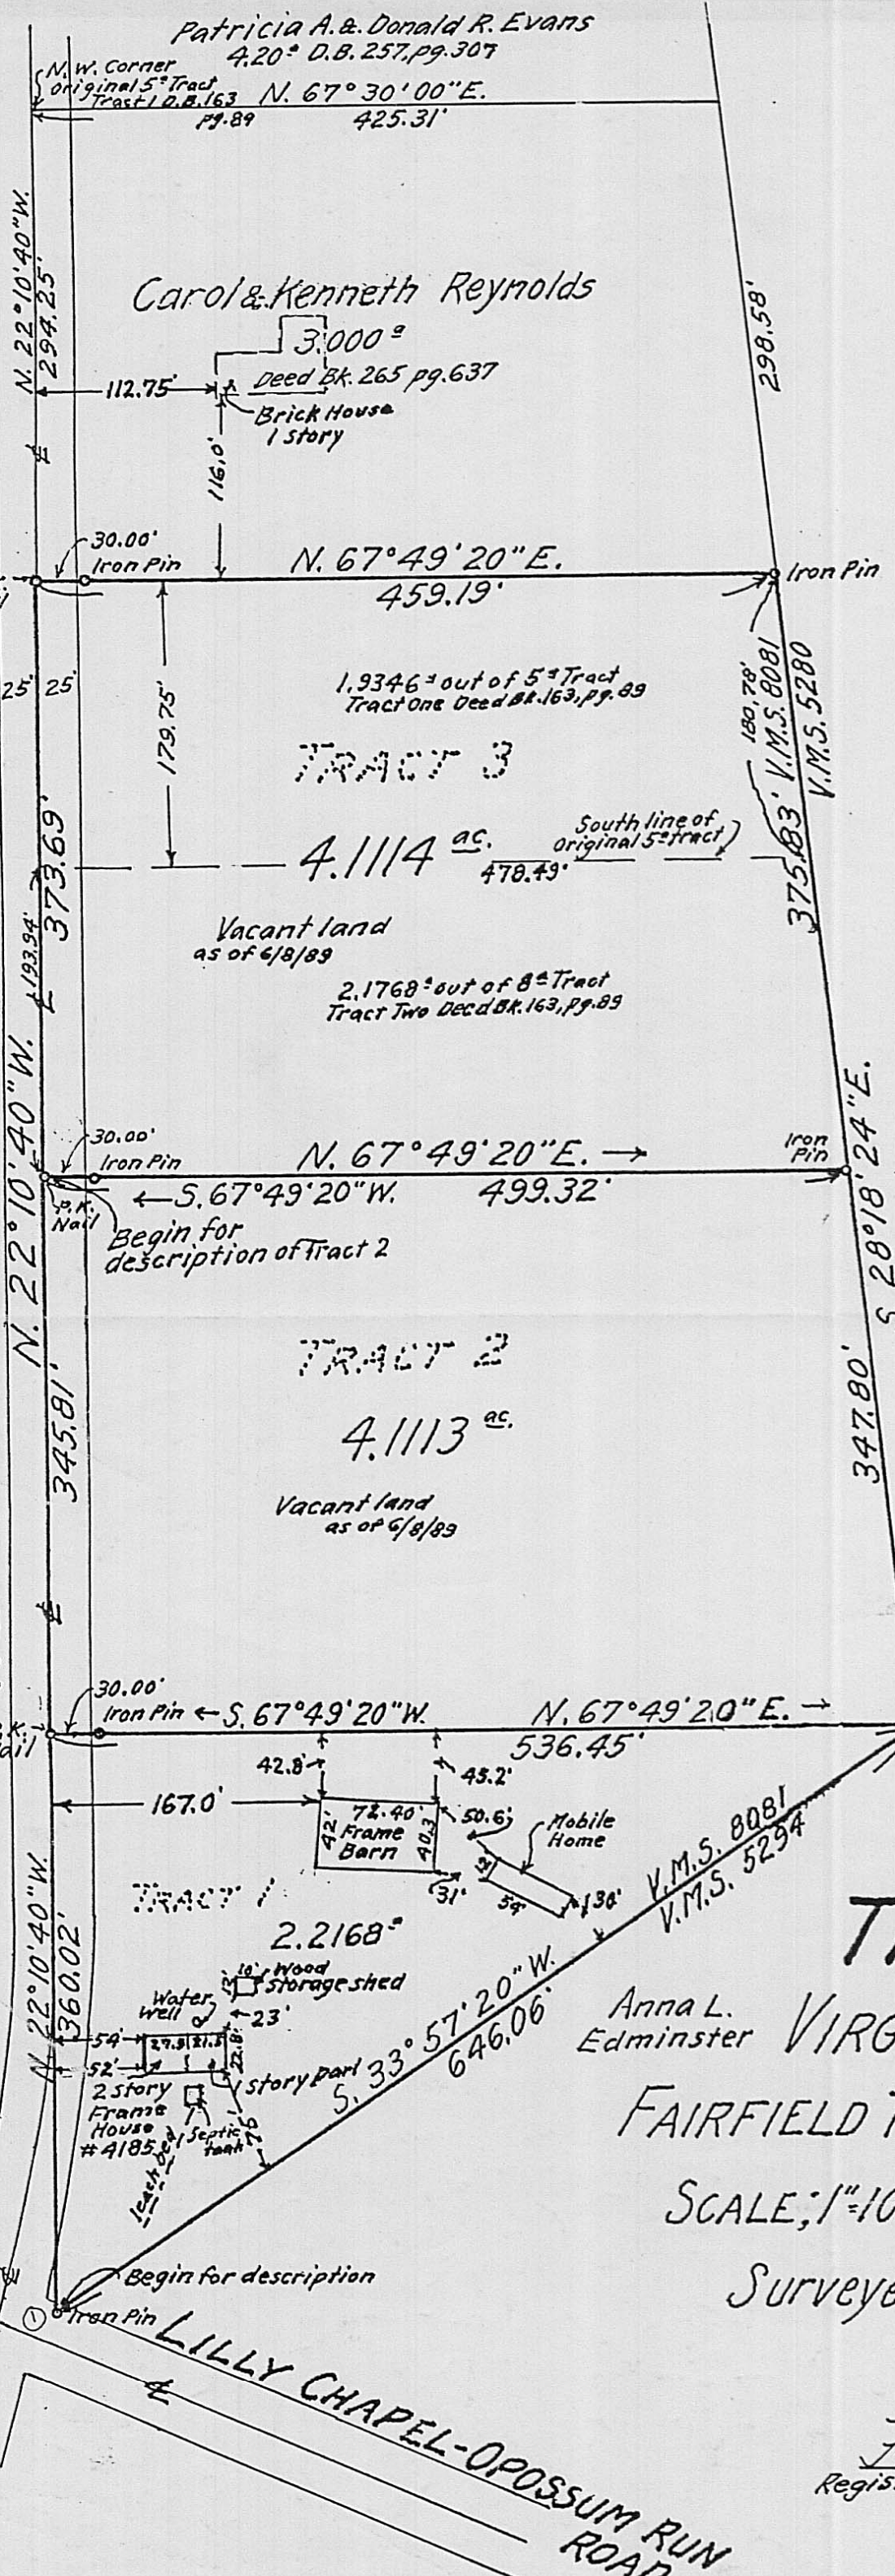 Patricia A. & Donald R. Evans
4.20ª D.B. 257, pg. 307
N.W. Corner
original 5ª Tract
Tract 1 D.B. 163
pg. 89
N. 67°30'00"E.
425.31'
N. 22°10'40"W.
294.25'
298.58'
Carol & Kenneth Reynolds
3.000ª
Deed Bk. 265 pg. 637
112.75'
Brick House
1 story
116.0'
30.00'
Iron Pin
N. 67°49'20"E.
459.19'
Iron Pin
25' 25'
179.75'
1.9346ª out of 5ª Tract
Tract One Deed Bk. 163, pg. 89
180.78'
V.M.S. 8081
V.M.S. 5280
TRACT 3
4.1114 ac.
South line of
Original 5ª tract
478.49'
375.83'
373.69'
193.94'
Vacant land
as of 6/8/89
2.1768ª out of 8ª Tract
Tract Two Deed Bk. 163, pg. 89
N. 22°10'40"W.
30.00'
Iron Pin
N. 67°49'20"E. →
Iron
Pin
← S. 67°49'20"W.
499.32'
P.K.
Nail
Begin for
description of Tract 2
S 28°18'24"E.
TRACT 2
4.1113 ac.
345.81'
347.80'
Vacant land
as of 6/8/89
30.00'
Iron Pin
← S. 67°49'20"W.
N. 67°49'20"E. →
536.45'
42.8'
45.2'
167.0'
72.40'
Frame
Barn
42'
40.3
50.6'
Mobile
Home
12'
54'
31'
30'
V.M.S. 8081
V.M.S. 5294
TRACT 1
2.2168ª
N 22°10'40"W.
360.02'
10'
Wood
Storage shed
Water
Well
23'
54'
29.5
21.5
22.8'
52'
1 story part
2 story
Frame
House
#4185
Septic
tank
75'
leach bed
S. 33°57'20"W.
646.06'
Anna L.
Edminster
VIRG
FAIRFIELD
SCALE; 1"=10
Surveye
Begin for description
1
Iron Pin
LILLY CHAPEL-OPOSSUM RUN
ROAD
Regis